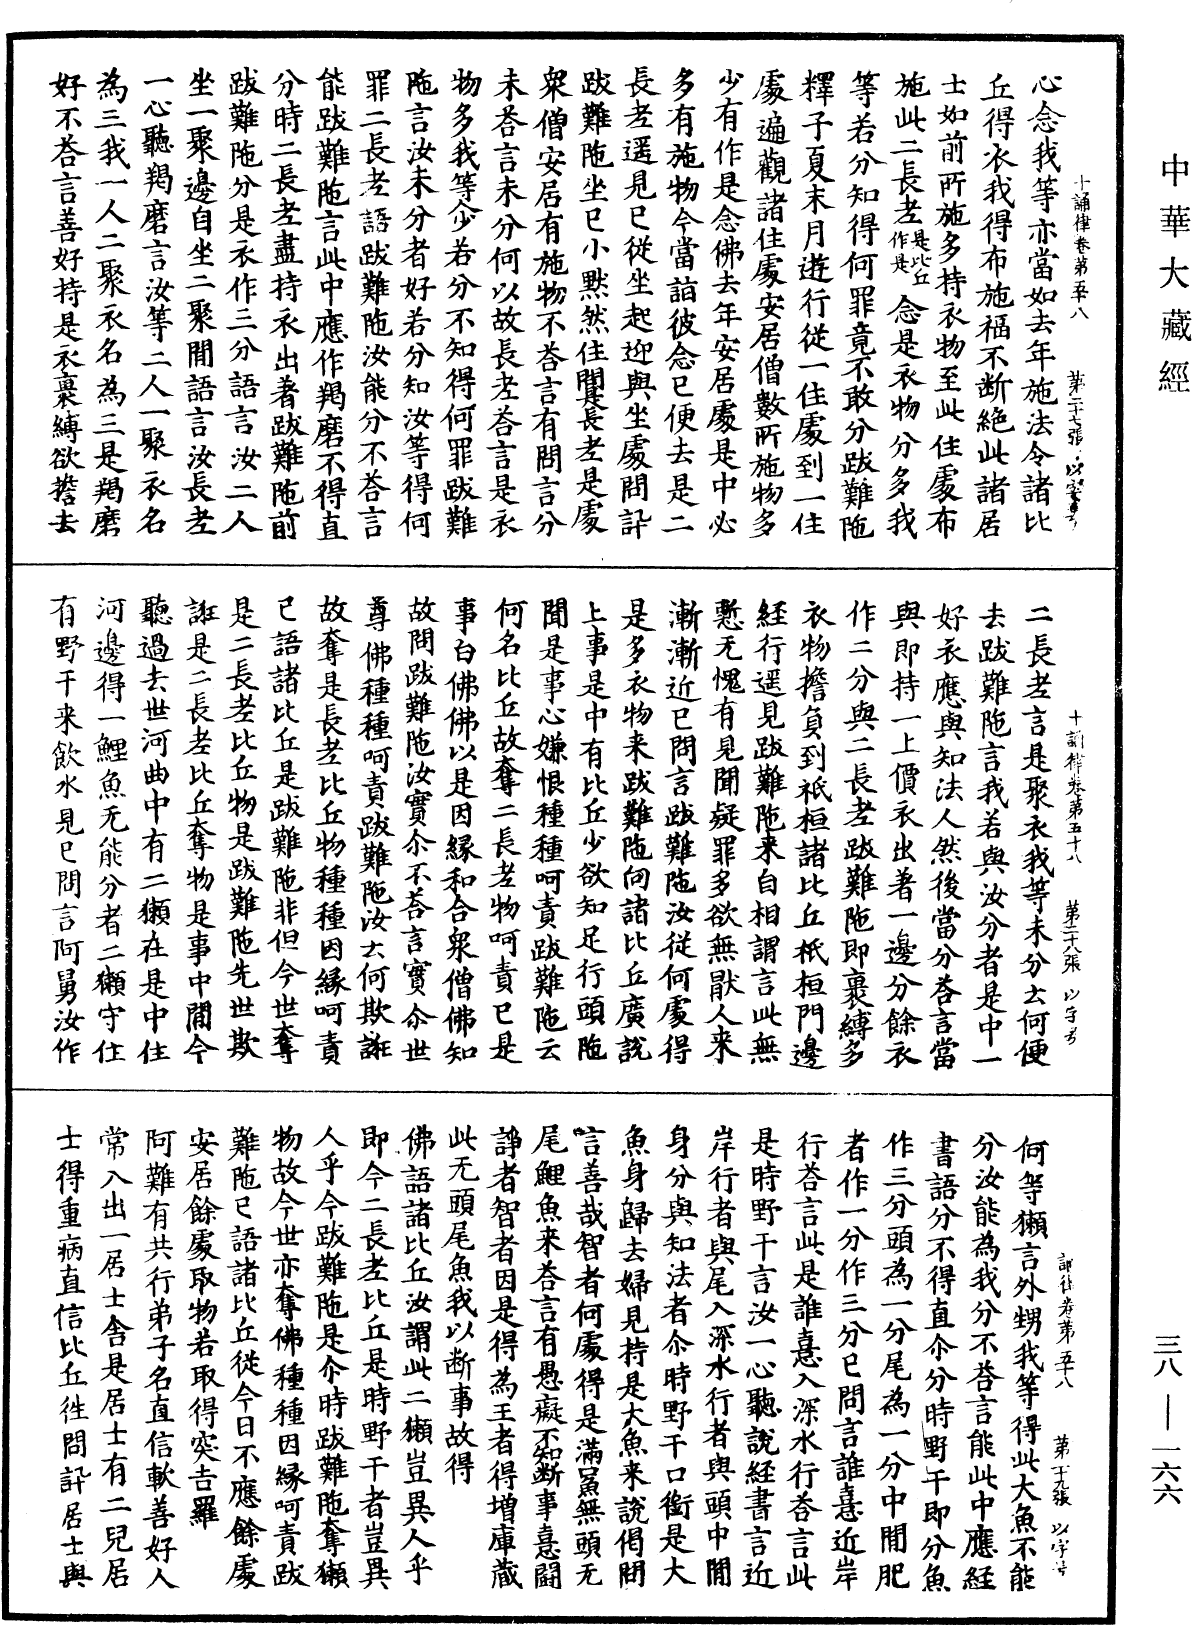 中華大藏經
十誦律卷第五十八 第二十七張 以字号
心念我等亦當如去年施法令諸比
丘得衣我得布施福不断絶此諸居
士如前所施多持衣物至此住處布
施此二長老是比丘作是念是衣物分多我
等若分知得何罪竟不敢分跋難陁
釋子夏末月遊行從一住處到一住
處遍觀諸住處安居僧數所施物多
少有作是念佛去年安居處是中必
多有施物今當詣彼念已便去是二
長老遥見已從坐起迎與坐處問訊
跋難陁坐已小默然住問其長老是處
衆僧安居有施物不荅言有問言分
未荅言未分何以故長老荅言是衣
物多我等少若分不知得何罪跋難
陁言汝未分者好若分知汝等得何
罪二長老語跋難陁汝能分不荅言
能跋難陁言此中應作羯磨不得直
分時二長老盡持衣出著跋難陁前
跋難陁分是衣作三分語言汝二人
坐一聚邊自坐二聚閒語言汝長老
一心聽羯磨言汝等二人一聚衣名
為三我一人二聚衣名為三是羯磨
好不荅言善好持是衣裹縛欲擔去
十誦律卷第五十八 第二十八張 以字号
二長老言是聚衣我等未分云何便
去跋難陁言我若與汝分者是中一
好衣應與知法人然後當分荅言當
與即持一上價衣出著一邊分餘衣
作二分與二長老跋難陁即裹縛多
衣物擔負到祇桓諸比丘祇桓門邊
經行遥見跋難陁来自相謂言此無
慙无愧有見聞疑罪多欲無猒人来
漸漸近已問言跋難陁汝從何處得
是多衣物来跋難陁向諸比丘廣說
上事是中有比丘少欲知足行頭陁
聞是事心嫌恨種種呵責跋難陁云
何名比丘故奪二長老物呵責已是
事白佛佛以是因縁和合衆僧佛知
故問跋難陁汝實尒不荅言實尒世
尊佛種種呵責跋難陁汝云何欺誑
故奪是長老比丘物種種因縁呵責
已語諸比丘是跋難陁非但今世奪
是二長老比丘物是跋難陁先世欺
誑是二長老比丘奪物是事中閒今
聽過去世河曲中有二獺在是中住
河邊得一鯉魚无能分者二獺守住
有野干来飲水見已問言阿舅汝作
十誦律卷第五十八 第二十九張 以字号
何等獺言外甥我等得此大魚不能
分汝能為我分不荅言能此中應經
書語分不得直尒分時野干即分魚
作三分頭為一分尾為一分中閒肥
者作一分作三分已問言誰憙近岸
行荅言此是誰憙入深水行荅言此
是時野干言汝一心聽說經書言近
岸行者與尾入深水行者與頭中閒
身分與知法者尒時野干口銜是大
魚身歸去婦見持是大魚来說偈問
言善哉智者何處得是滿冨無頭无
尾鯉魚来荅言有愚癡不知断事憙鬪
諍者智者因是得為王者得增庫藏
此无頭尾魚我以断事故得
佛語諸比丘汝謂此二獺豈異人乎
即今二長老比丘是時野干者豈異
人乎今跋難陁是尒時跋難陁奪獺
物故今世亦奪佛種種因縁呵責跋
難陁已語諸比丘從今日不應餘處
安居餘處取物若取得突吉羅
阿難有共行弟子名直信軟善好人
常入出一居士舍是居士有二兒居
士得重病直信比丘徃問訊居士與
三八—一六六